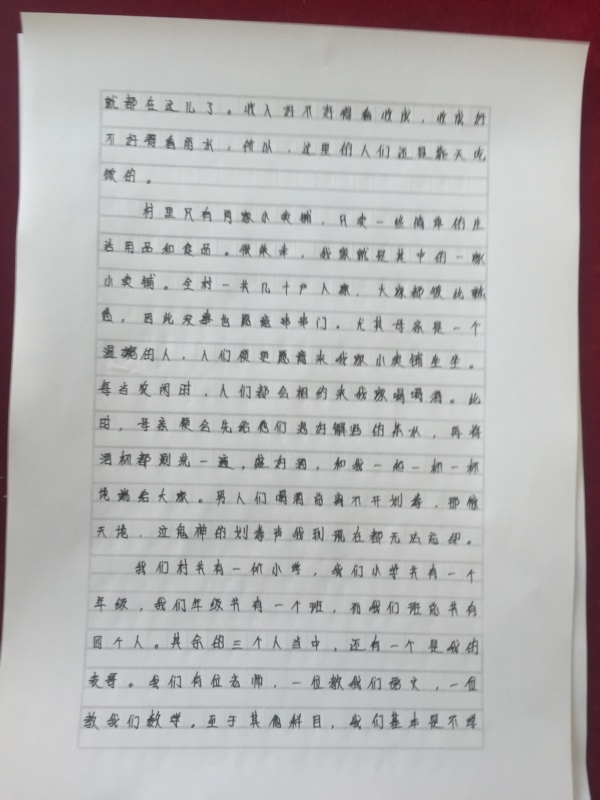 就都在这儿了。收入好不好得看收成，收成好
不好得看雨水，所以，这里的人们还是靠天吃
饭的。
村里只有两家小卖铺，只卖一些简单的生
活用品和食品。很荣幸，我家就是其中的一家
小卖铺。全村一共几十户人家，大家都彼此熟
悉，因此没事也愿意串串门。尤其母亲是一个
温婉的人，人们便更愿意来我家小卖铺坐坐。
每当农闲时，人们都会相约来我家喝喝酒。此
时，母亲便会先给他们送好解渴的茶水，再将
酒杯都涮洗一遍，盛好酒，和我一起一杯一杯
地端给大家。男人们喝酒前离不开划拳，那惊
天地，泣鬼神的划拳声我到现在都无法忘却。
我们村共有一所小学，我们小学共有一个
年级，我们年级共有一个班，而我们班总共有
四个人。其余的三个人当中，还有一个是我的
表哥。我们有位老师，一位教我们语文，一位
教我们数学。至于其他科目，我们基本是不